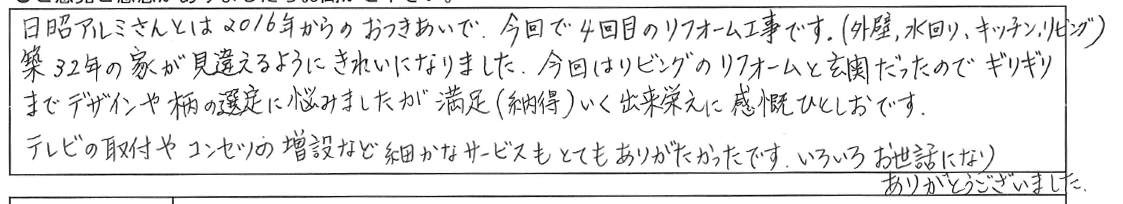 日昭アルミさんとは2016年からのおつきあいで、今回で4回目のリフォーム工事です。(外壁,水回り、キッチン,リビング)
築32年の家が見違えるようにきれいになりました。今回はリビングのリフォームと玄関だったのでギリギリ
までデザインや柄の選定に悩みましたが満足(納得)いく出来栄えに感慨ひとしおです。
テレビの取付やコンセツの増設など細かなサービスもとてもありがたかったです。いろいろお世話になり
ありがとうございました。